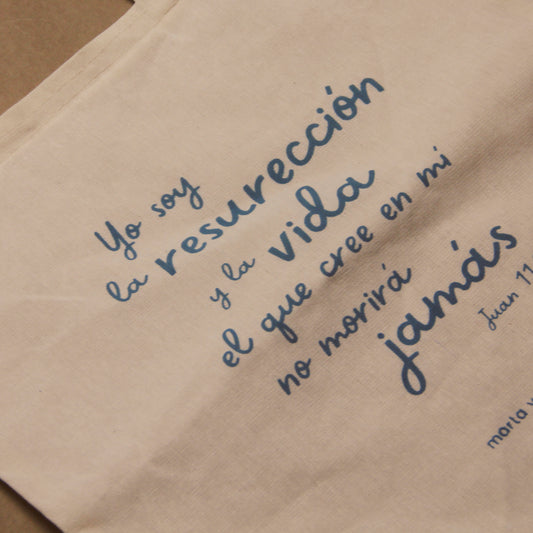 Yo soy
la resurección
y la vida
el que cree en mí
no morirá
jamás
Juan 11
marta y